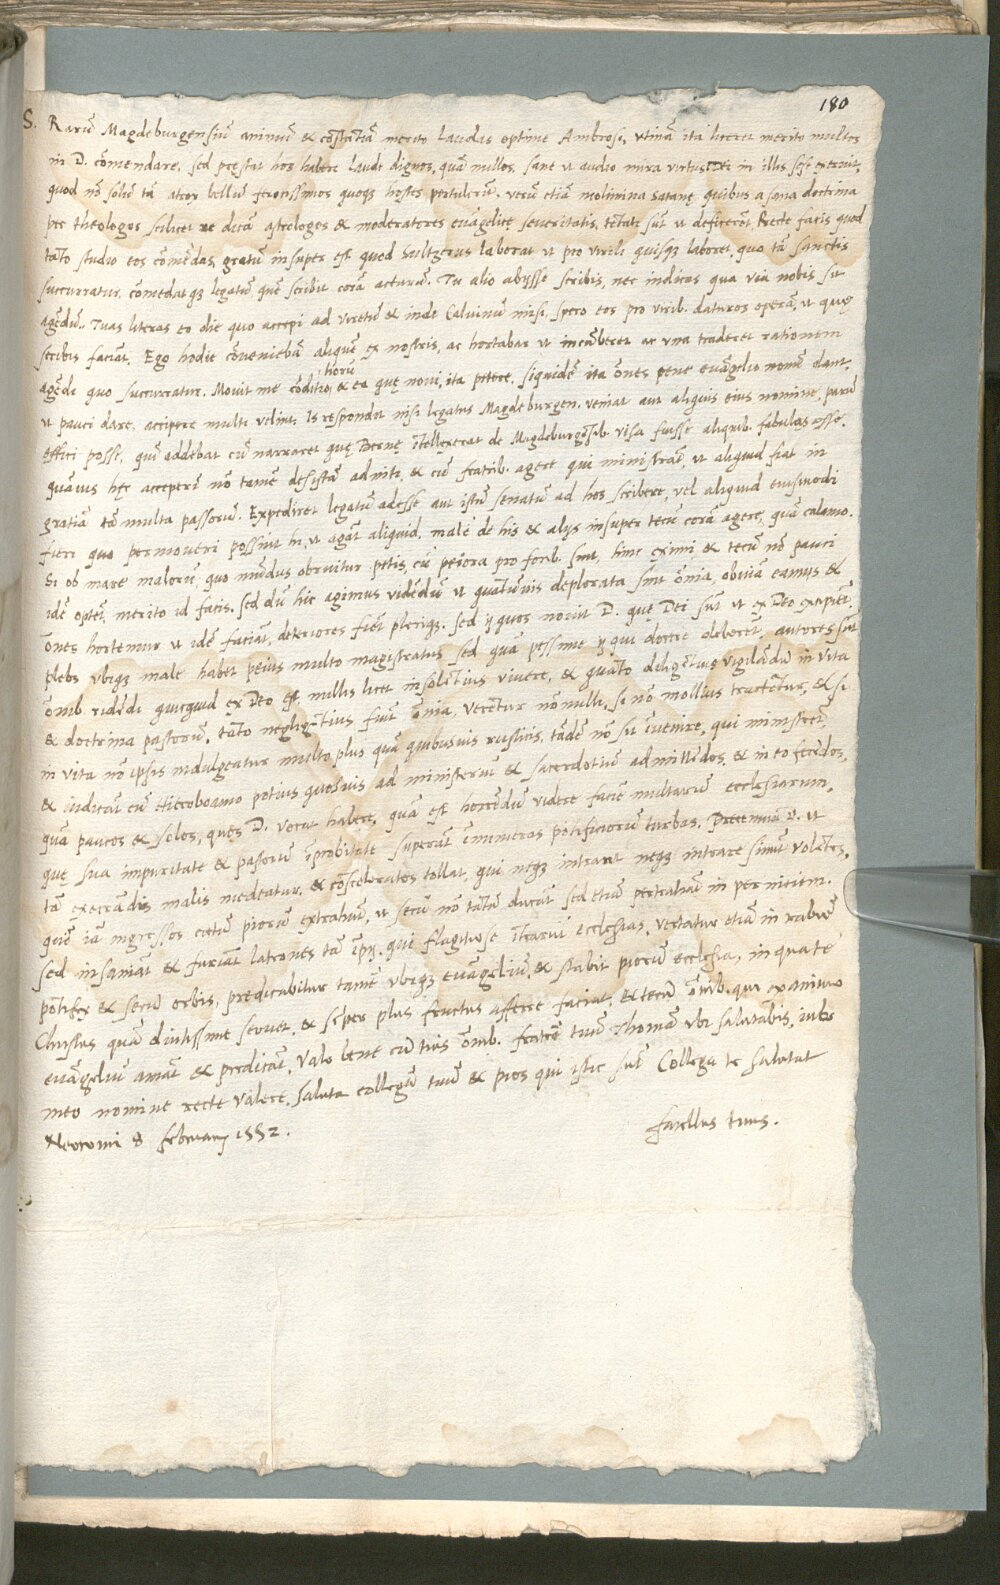 180
S. Rarū Magdeburgensiū animū & cōstātiā merito laudas optime Ambrosi, vtinā ita liceret merito multos
in D. cōmendare, sed pręstat hos habere laude dignos, quā nullos, sane vt audio mira virtus Dei in illis sese exeruit,
quod nō solū tā atrox bellū ferocissimos quoqȝ hostes pertulerūt, verū etiā molimina Satanę quibus a sana doctrina
per theologos scilicet ne dicā astrologos & moderatores euāgelicę seueritatis, tētati sūt vt deficerēt. Recte facis quod
tāto studio eos cōmēdas, gratū insuper est quod Sultzerus laborat vt pro virili quisqȝ laboret, quo tā sanctis
succurratur, cōmēdatqȝ legatū quē scribit corā acturū. Tu alio abysse scribis, nec indicas qua via nobis sit
agēdū. Tuas literas eo die quo accepi ad Viretū & inde Caluinū misi, spero eos pro virib. daturos operā, vt quę
scribis faciāt. Ego hodie cōueniebā aliquē ex nostris, ac hortabar vt incūberet ac vna traderet rationem
agēdi quo succurratur. Mouit me cōditio horū, & ea quę noui, ita petere, siquidē ita ōnes pene euāgelio nomē dant,
vt pauci dare, accipere multi velint. Is respondet nisi legatus Magdeburgen. veniat aut aliquis eius nomine, parū
effici posse, qui addebat cū narraret quę Bernę ītellexerat de Magdeburgēsib. visa fuisse aliquib. fabulas esse.
quāuis hęc acceperī nō tamē desistā admitti, & cū fratrib. agere qui ministrāt, vt aliquid fiat in
gratiā tā multa passorū. Expediret legatū adesse aut istū senatū ad hos scribere, vel aliquid eiusmodi
fieri quo permoueri possint hi, vt agāt aliquid. malē de his & alijs insuper tecū corā agere, quā calamo.
Si ob mare malorū, quo mūdus obruitur petis, cū peiora pro forib. sint, hinc eximi & tecū nō pauci
idē optēt, merito id facis. sed dū hic agimus vidēdū vt quātūuis deplorata sint ōnia, obuiā eamus &
ōnes hortemur vt idē faciāt, deteriores fiēt pleriqȝ. sed ij quos nouit D. quę Dei sūt vt ex Deo excipiēt.
plebs vbiqȝ male habet peius multo magistratus sed quā pessime ij qui docere deberēt, autores sūt
ōnib. ridēdi quicquid ex Deo est nullis licet insolētius viuere, & quāto diligētius vigilādū in vita
& doctrina pastorū, tāto negligētius fiūt ōnia, verētur nōnulli, si nō mollius tractētur, & si
in vita nō ipsis indulgeatur multo plus quā quibusuis rusticis, tādē nō sit īuenire, qui ministrēt,
& iudicāt cū Hieroboamo potius quosuis ad ministeriū & sacerdotiū admittēdos, & in eo fecēdos,
quā paucos & solos, quos D. vocat habere, quā est horrēdū videre facie multarū ecclesiarum,
quę sua impuritate & pastorū īprobitate superāt īnumeras pōtificiorū turbas. Precemur D. vt
tā execrādis malis medeatur, & cōsceleratos tollat, qui neqȝ intrant neqȝ intrare sinūt volētes,
quī iā ingressos cœtū piorū extrahūt, vt secū nō tātū ducāt sed etiā pertrahāt in perniciem.
sed insaniāt & furiāt latrones tā īpij, qui flagitiose īterūt ecclesias, vertatur etiā in rabiē
pōtifex & secū orbis, predicabitur tamē vbiqȝ euāgeliū, & stabit piorū ecclesia, in qua te
Christus quā diutissime seruet, & sēper plus fructus afferre faciat, & tecū ōnib. qui ex animo
euāgeliū amāt & predicāt. Vale bene cū tuis ōnib. fratrē tuū Thomā vbi salutabis, iube
meo nomine recte valere. saluta collegā tuū & pios qui istic sūt. Collega te salutat
Neocomi 8 february 1552.
Farellus tuus.